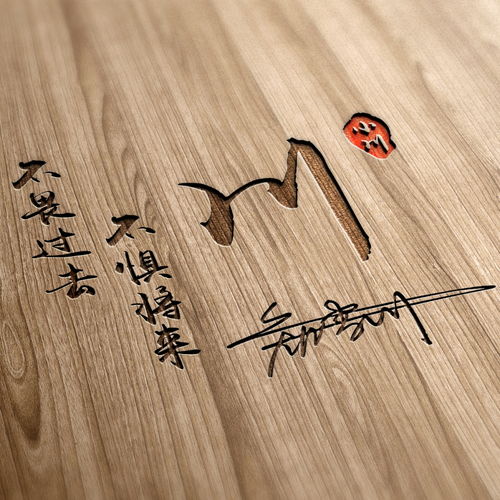 不畏过去
不惧将来
川